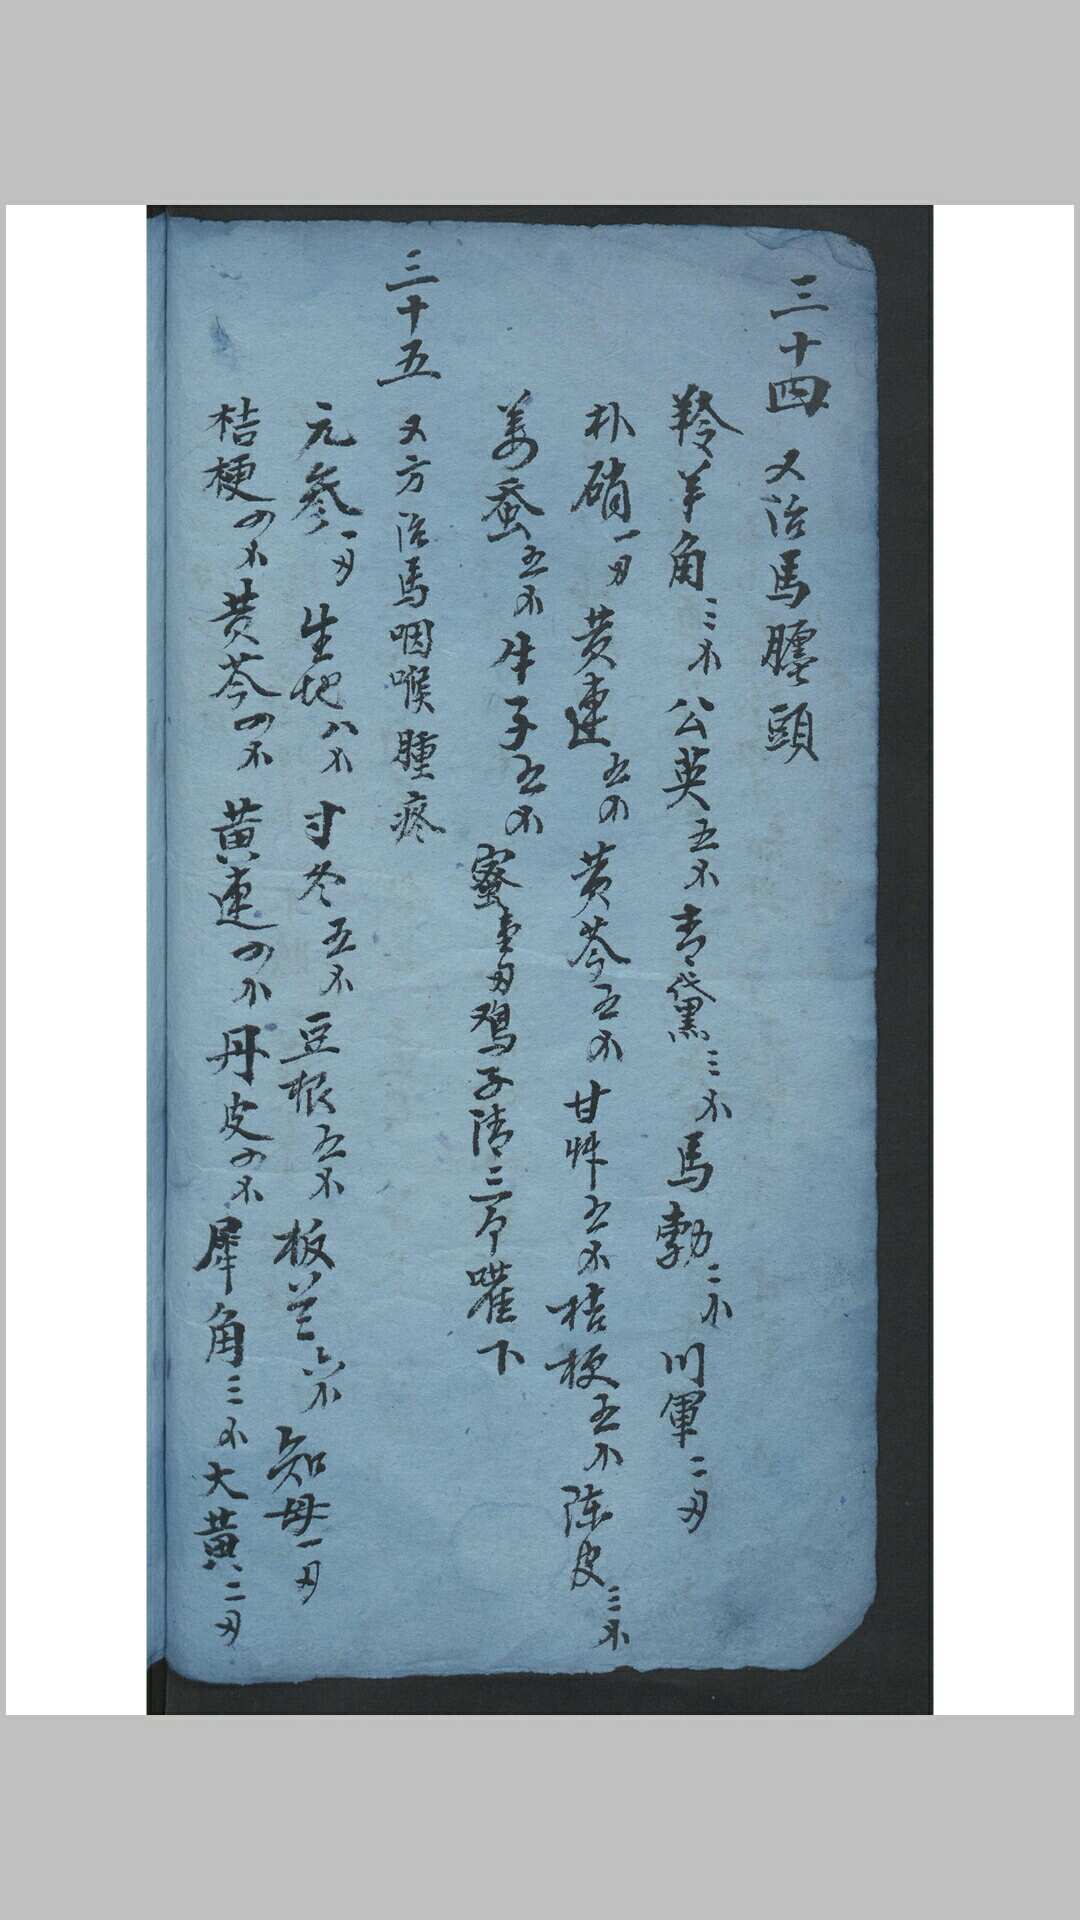 三十四 又治馬腫頭
羚羊角三不公英五不青黛三不馬勃二不川軍二刄
朴硝一刄黄連五不黄芩五不甘草五不桔梗五不陈皮三不
姜蚕五不牛子五不蜜壹刄鸡子清三个嚾下
三十五 又方治馬咽喉腫疼
元參一刄生地八不寸冬五不豆根五不板兰六不知母一刄
桔梗四不黄芩四不黄連四不丹皮四不犀角三不大黄二刄